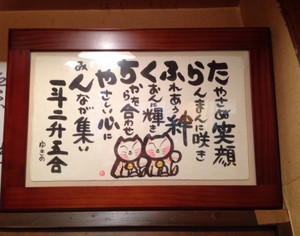 たやさぬ笑顔
らんまんに咲き
ふれあう絆
くおんに輝き
ちから合わせ
やさしい心に
みんなが集い
一斗二升五合